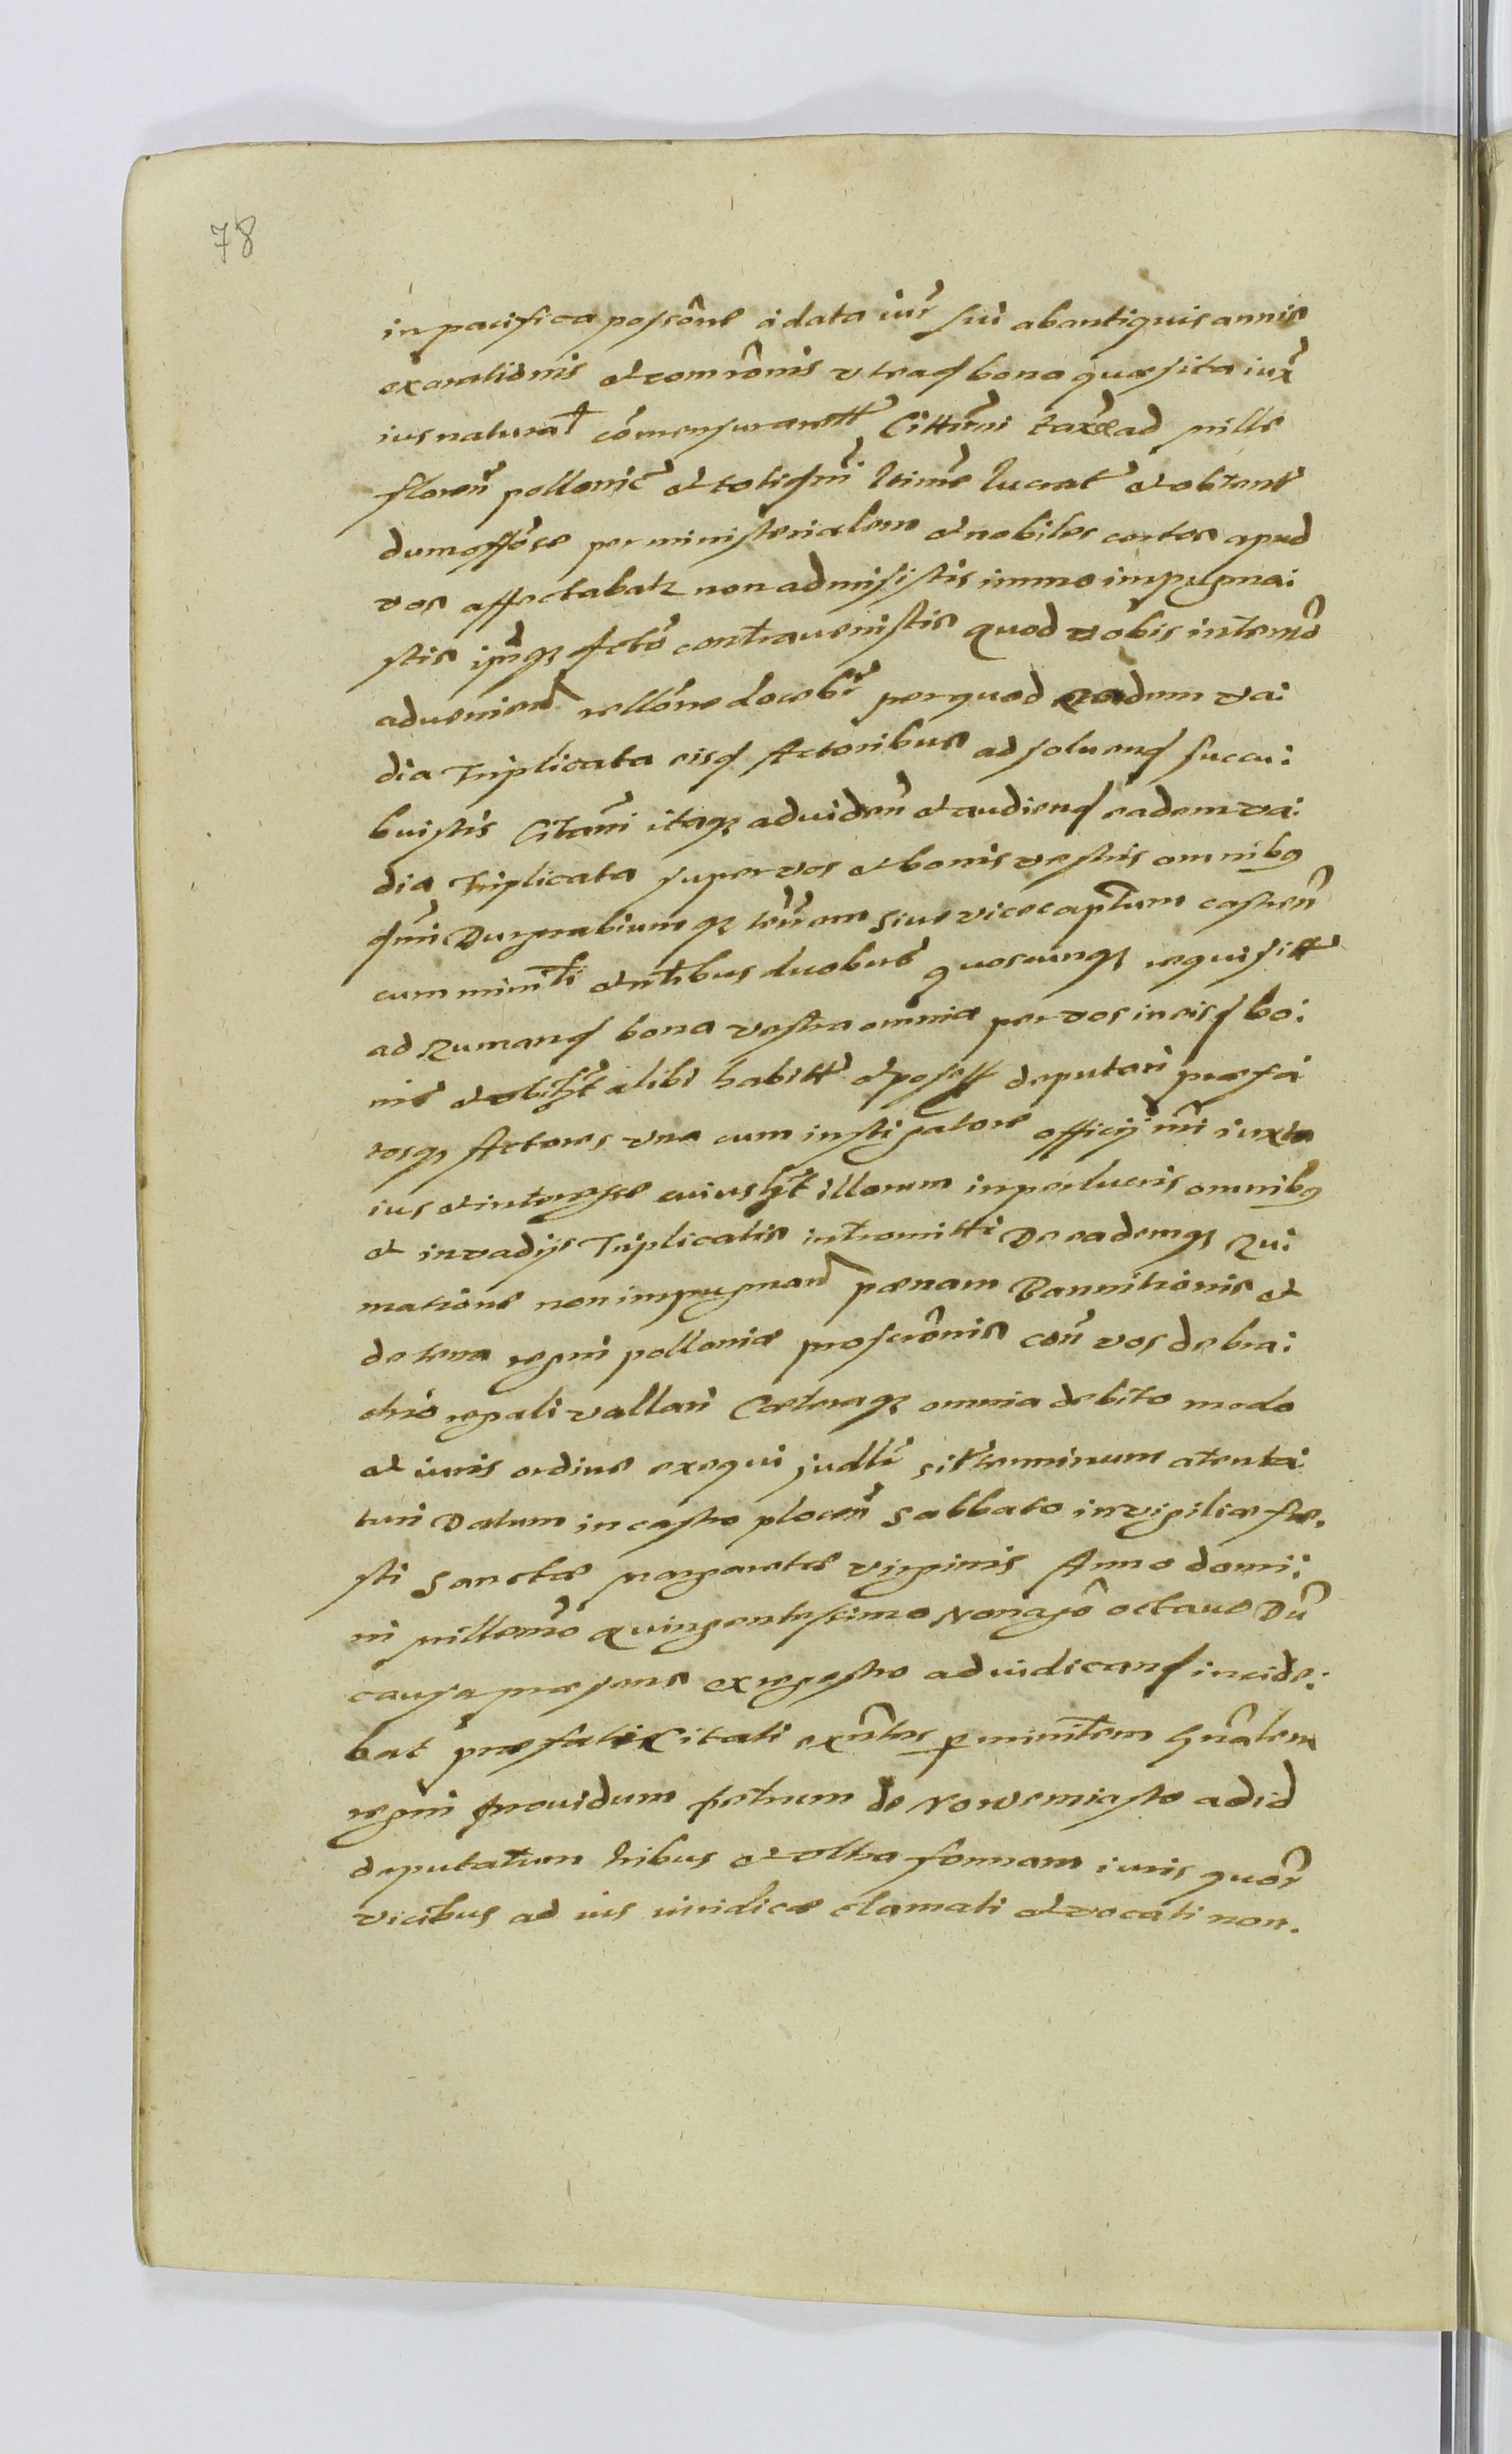 78
in pacifica possône a data iur̃ sui ab antiquis annis
exaratiônis et comiônis vtraq bona quæsita iux̃
ius natural cõmensurarett Cittimi taxæ ad mille
floreñ pollonic̃ et totiq̃m ltime lucrat̃ et obtent
dum offõse per ministerialem et nobiles certos apud
vos affectabatr non admisistis immo impugna:
stis ip̃mq; Actõ contrauenistis quod vobis in term̃o
adueniend̃ rellône docebr̃ per quod eadem va:
dia Triplicata eisd Actoribus ad soluend succu:
buistis Citam̃ itaq; ad viden̄ et audiend eadem va:
dia Triplicata super vos et bonis vestris omnibq
q̃m Burgrabiumq; terr̃am siue vicecaptum castreñ
cum minlti et ntibus duobus quoscunq; requisitt
ad Rumand bona vestra omnia per vos in eisd bo:
nis et vbilzt alibi habitt et possess deputari præfa
tosq; Actores vna cum instigatore officij nr̃i iuxta
ius et interesse cuiuslzt illorum in perlucris omnibq
et in vadijs Triplicatis intromitti De eademq; Rui
matione non impugnand̃ pœnam Bannitionis et
de terra regni polloniæ proscrônis con̄ vos de bra:
chio regali vallari Cæteraq; omnia debito modo
et iuris ordine exequi judlr̃ sitr terminum attenta:
turi Datum in castro ploceñ Sabbato in vigiliæ fe.
sti Sanctæ margaretæ virginis Anno domi:
ni millem̃o quingentessimo Nonagô octauo Dũ
causa præsens ex regestro ad iudicand incide:
bat præfati Citati exñtes p ministem gñalem
regni prouidum petrum de Nowemiasto ad id
deputatum tribus et vltra formam iuris quor̃
vicibus ad ius iuridicæ clamati et vocati non.